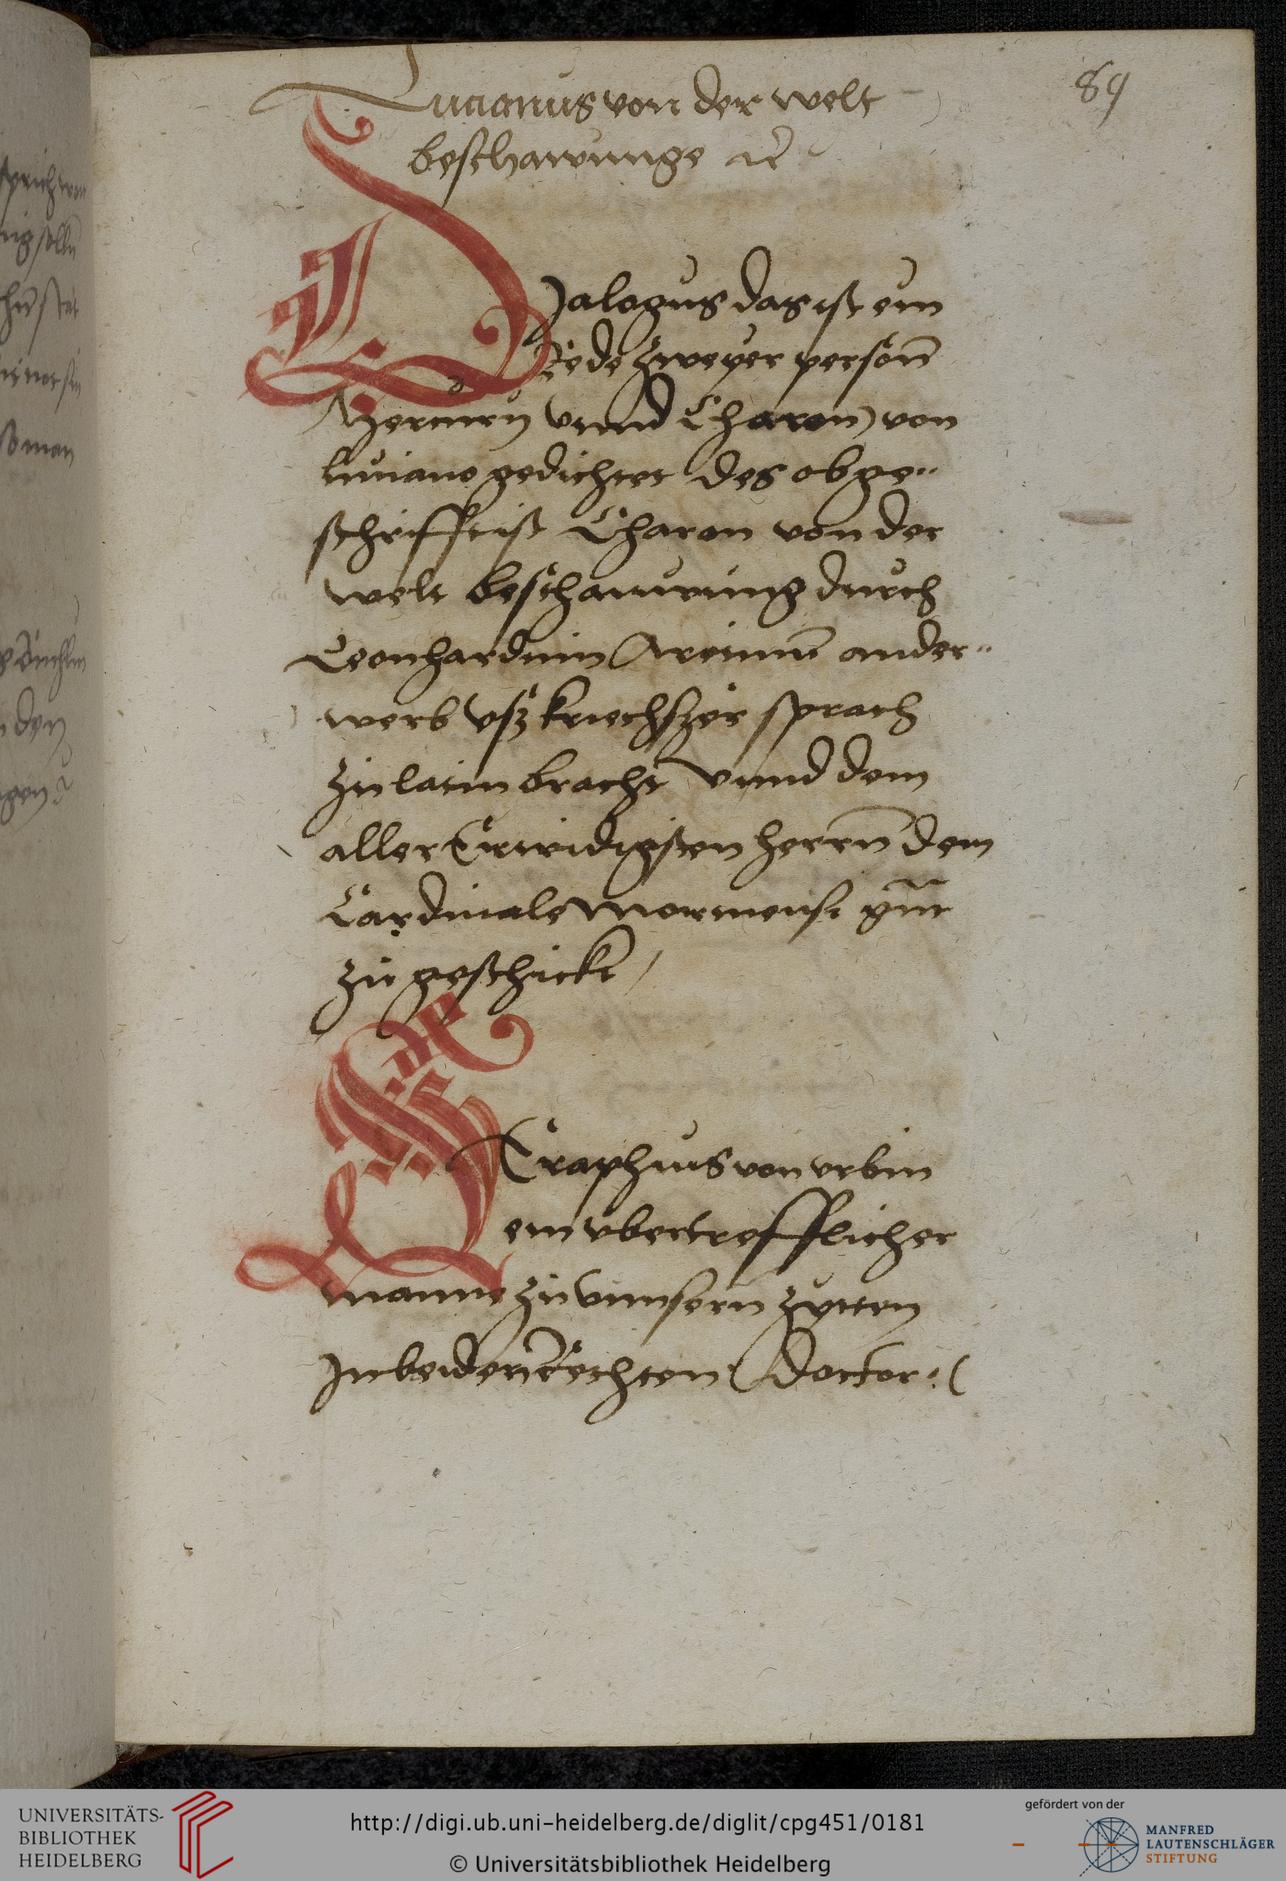 89
Lucianus von der welt
beschawunge ꝛc
Dialogus das ist ein
Rede zweyer persone͂
Mercurÿ vnnd Charon) von
luciano gedichtet des obge„
schrifft ist Charon von der
welt beschauwung durch
Leonhardum Aretinu͂ ander„
werb vsz kriechszer sprach
zu latin bracht vnnd dem
aller Erwirdigisten herrn͂ dem
Cardinale
zu geschickt /
Seraphius von vrbin
ein vbertrefflicher
manne zu vnnsern zytten
In beiden Rechten Doctor
UNIVERSITÄTS-
BIBLIOTHEK
HEIDELBERG
http://digi.ub.uni-heidelberg.de/diglit/cpg451/0181
© Universitätsbibliothek Heidelberg
gefördert von der
MANFRED
LAUTENSCHLÄGER
STIFTUNG